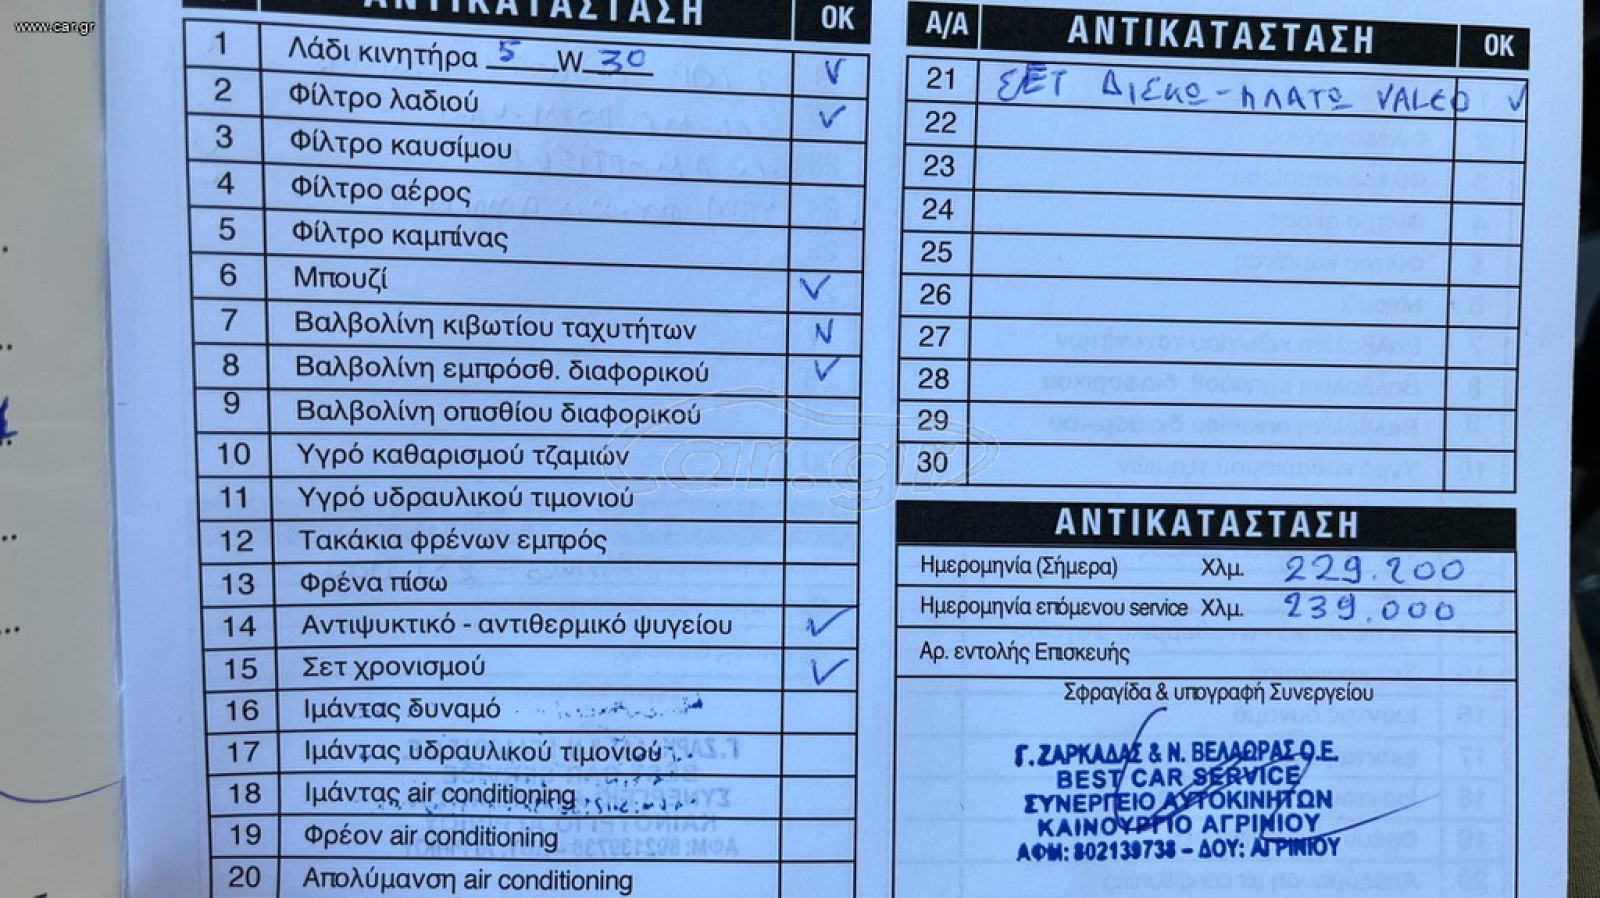 www.car.gr
ΑΝΤΙΚΑΤΑΣΤΑΣΗ OK
1 Λάδι κινητήρα 5 W 30 ✓
2 Φίλτρο λαδιού ✓
3 Φίλτρο καυσίμου
4 Φίλτρο αέρος
5 Φίλτρο καμπίνας
6 Μπουζί ✓
7 Βαλβολίνη κιβωτίου ταχυτήτων N
8 Βαλβολίνη εμπρόσθ. διαφορικού ✓
9 Βαλβολίνη οπισθίου διαφορικού
10 Υγρό καθαρισμού τζαμιών
11 Υγρό υδραυλικού τιμονιού
12 Τακάκια φρένων εμπρός
13 Φρένα πίσω
14 Αντιψυκτικό - αντιθερμικό ψυγείου ✓
15 Σετ χρονισμού ✓
16 Ιμάντας δυναμό
17 Ιμάντας υδραυλικού τιμονιού
18 Ιμάντας air conditioning
19 Φρέον air conditioning
20 Απολύμανση air conditioning
Α/Α ΑΝΤΙΚΑΤΑΣΤΑΣΗ OK
21 ΣΕΤ ΔΙΣΚΩ-ΠΛΑΤΩ VALEO ✓
22
23
24
25
26
27
28
29
30
car.gr
ΑΝΤΙΚΑΤΑΣΤΑΣΗ
Ημερομηνία (Σήμερα) Χλμ. 229.200
Ημερομηνία επόμενου service Χλμ. 239.000
Αρ. εντολής Επισκευής
Σφραγίδα & υπογραφή Συνεργείου
Γ. ΖΑΡΚΑΔΑΣ & Ν. ΒΕΛΑΩΡΑΣ Ο.Ε.
BEST CAR SERVICE
ΣΥΝΕΡΓΕΙΟ ΑΥΤΟΚΙΝΗΤΩΝ
ΚΑΙΝΟΥΡΓΙΟ ΑΓΡΙΝΙΟΥ
ΑΦΜ: 802139738 - ΔΟΥ: ΑΓΡΙΝΙΟΥ